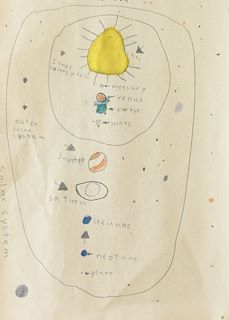 inner
solar system
mercury
venus
earth
mars
outer
solar
system
Jupiter
saturn
uranus
neptune
pluto
solar system